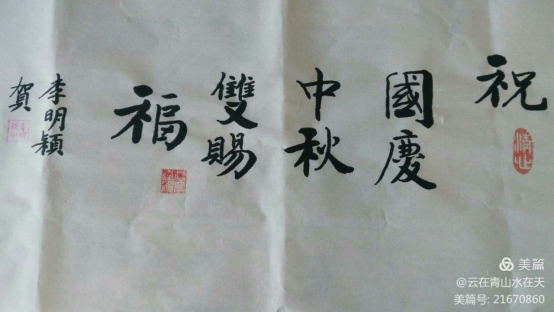 祝
國慶
中秋
雙賜
福
李明穎
賀
美篇
@云在青山水在天
美篇号: 21670860